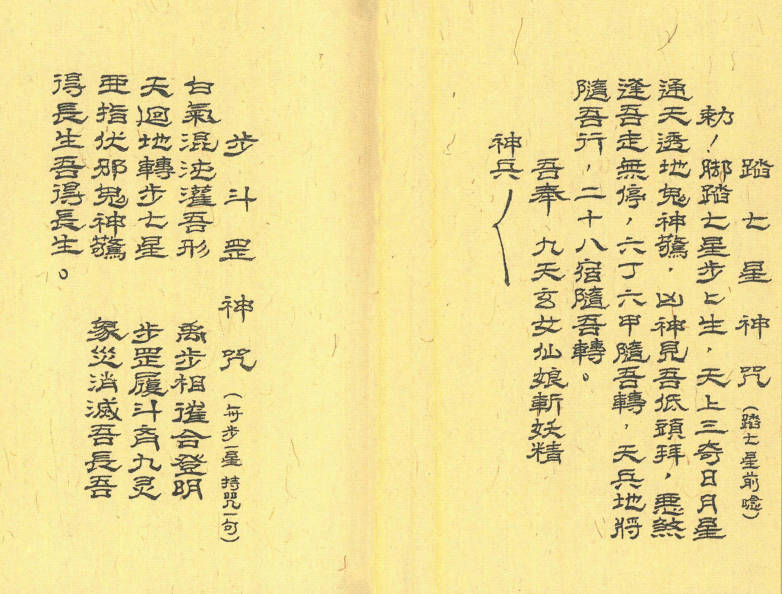 踏七星神咒(踏七星前唸)
勅!脚踏七星步匕生,天上三奇日月星
通天透地鬼神驚,凶神見吾低頭拜,惡煞
逢吾走無停,六丁六甲隨吾轉,天兵地將
隨吾行,二十八宿隨吾轉。
吾奉 九天玄女仙娘斬妖精
神兵
步斗罡神咒(每步一星 持咒一句)
白氣混沌灌吾形 禹步相催合登明
天迴地轉步七星 步罡履斗齐九灵
亜指伏邪鬼神驚 象災消滅吾長吾
得長生吾得長生。